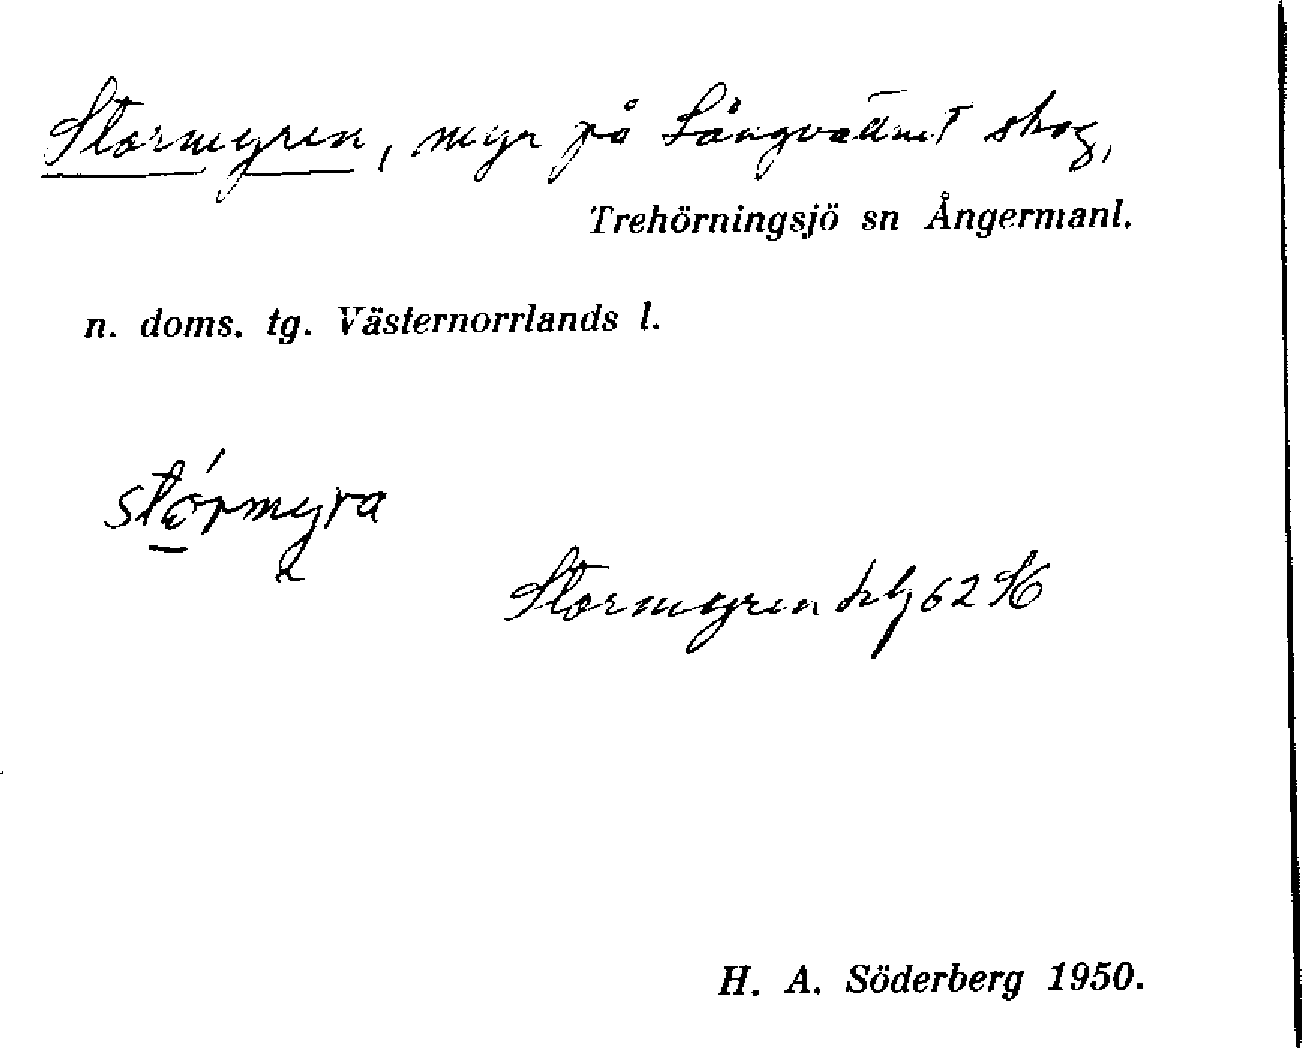 Stormyren, myr på Långvattnet skog,
Trehörningsjö sn Ångermanl.
n. doms. tg. Västernorrlands l.
stórmyra
Stormyren 62
H. A. Söderberg 1950.